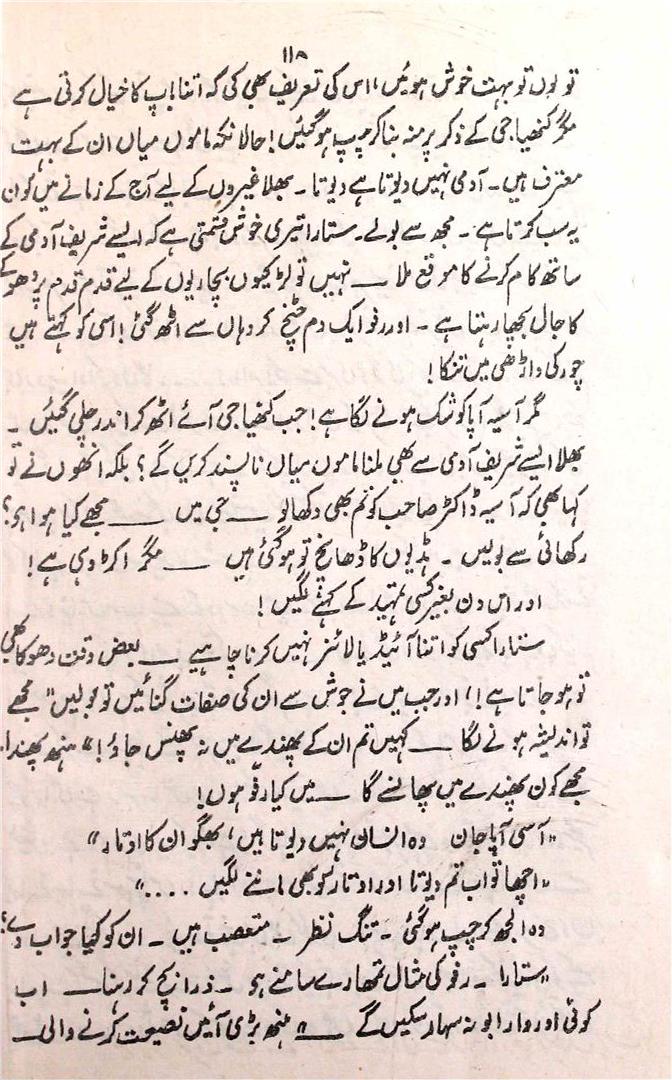 ۱۱۸
تو لوں تو بہت خوش ہوئیں، اس کی تعریف بھی کی کہ اتنا باپ کا خیال کرتی ہے
مگر کنھیا جی کے ذکر پر منہ بنا کر چپ ہو گئیں! حالانکہ ماموں میاں ان کے بہت
معترف ہیں۔ آدمی نہیں دیوتا ہے دیوتا۔ بھلا غیروں کے لیے آج کے زمانے میں کون
یہ سب کرتا ہے۔ مجھ سے بولے۔ ستارا تیری خوش قسمتی ہے کہ ایسے شریف آدمی کے
ساتھ کام کرنے کا موقع ملا ـــ نہیں تو لڑکیوں بچاریوں کے لیے قدم قدم پر دھوکے
کا جال بچھا رہتا ہے۔ اور رفو ایک دم پٹخ کر وہاں سے اٹھ گئی! اسی کو کہتے ہیں
چور کی داڑھی میں تنکا!
مگر آسیہ آپا کو شک ہونے لگا ہے! جب کنھیا جی آئے اٹھ کر اندر چلی گئیں ۔
بھلا ایسے شریف آدمی سے بھی ملنا ماموں میاں ناپسند کریں گے؟ بلکہ انھوں نے تو
کہا بھی کہ آسیہ ڈاکٹر صاحب کو تم بھی دکھا لو ـــ جی میں ـــ مجھے کیا ہوا ہے؟
رکھائی سے بولیں۔ ہڈیوں کا ڈھانچ تو ہو گئی ہیں ـــ مگر اکڑ وہی ہے!
اور اس دن بغیر کسی تمہید کے کہنے لگیں!
ستارا کسی کو اتنا آئیڈیالائز نہیں کرنا چاہیے ـــ بعض وقت دھوکا بھی
تو ہو جاتا ہے!" اور جب میں نے جوش سے ان کی صفات گنائیں تو بولیں "مجھے
تو اندیشہ ہونے لگا ـــ کہیں تم ان کے پھندے میں نہ پھنس جاؤ!" ہنھ پھندا۔
مجھے کون پھندے میں پھانسے گا ـــ میں کیا رفو ہوں!
"آسی آپا جان وہ انسان نہیں دیوتا ہیں، بھگوان کا اوتار"
"اچھا تو اب تم دیوتا اور اوتار کو بھی ماننے لگیں ...."
وہ الجھ کر چپ ہو گئی۔ تنگ نظر۔ متعصب ہیں۔ ان کو کیا جواب دے؟
"ستارا۔ رفو کی مثال تمھارے سامنے ہے۔ ذرا بچ کر رہنا ـــ اب
کوئی اور وار ابو نہ سہار سکیں گے ـــ" ہنھ بڑی آئیں نصیحت کرنے والی ـــ